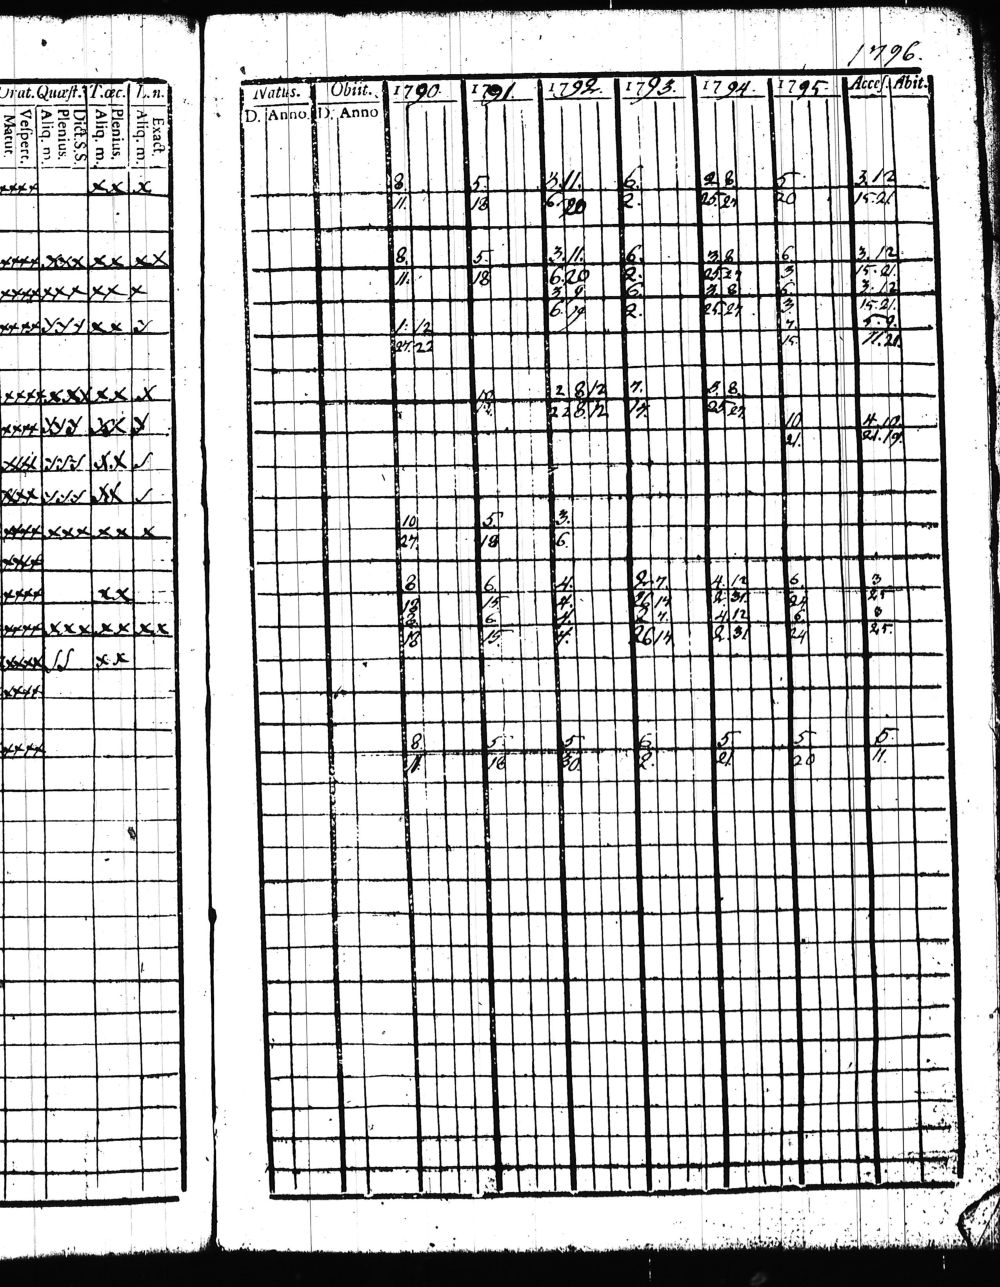 1796
Orat. Quæst. T. œc. L. n.
Matut. Vespert. Aliq. m. Plenius. Dict. S.S. Aliq. m. Plenius. Aliq. m. Exact.
Natus. Obiit. 1790. 1791. 1792. 1793. 1794. 1795. Acces. Abit.
D. Anno. D. Anno
xxxx xx x 8. 5. 3.11. 6. 2 8. 5 3.12
11. 18 6. 20 2. 25.27 20 15.21
xxxx xxx xx xx 8. 5. 3.11. 6. 3 8. 6 3.12
11. 18 6.20 2. 25.27 3 15.21.
xxxx xxx xx x 3 9. 6. 3 8. 6 3.12
6.19 2. 25.27 3. 15.21.
xxxx yyy xx y 1. 12 7. 5.9.
27.22 15. 11.21.
xxxx xxx xx x 12 2 8/2 7. 3. 8.
228/2 14. 25 27
xxxx xyy xx y 10 4.10.
21. 21.19.
xxxx yyy xx
xxxx yyy xx
xxxx xxx xx x 10 5. 3.
27. 18 6.
xxxx
xxxx xx 8 6. 4. 2 7. 4. 12 6. 3
18 15 4. 26 14 2. 31. 24 25
xxxx xxx xx xx 8 6. 4. 2 7. 4 12 6. 3
18 15. 4. 26 14. 2 31 24 25.
xxxx xx
xxxx
xxxx 8 5. 5 6 5 5 5
11. 18 30. 2. 21. 20 11.